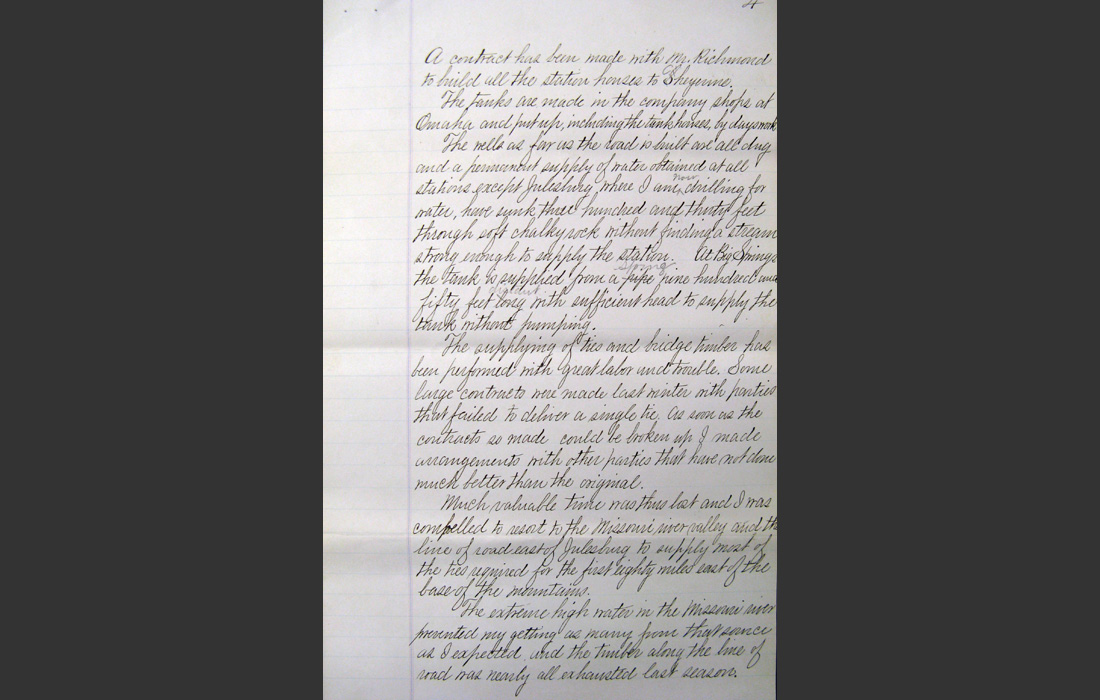 4
A contract has been made with Mr. Richmond
to build all the station houses to Cheyenne.
The tanks are made in the company shops at
Omaha and put up, including the tank houses, by days work
The wells as far as the road is built are all dug
and a permanent supply of water obtained at all
stations except Julesburg, where I am now drilling for
water, have sunk three hundred and thirty feet
through soft chalky rock without finding a stream
strong enough to supply the station. At Big Springs
the tank is supplied from a pipe spring nine hundred and
fifty feet long with sufficient head to supply the
tank without pumping.
The supplying of ties and bridge timber has
been performed with great labor and trouble. Some
large contracts were made last winter with parties
that failed to deliver a single tie. As soon as the
contracts so made could be broken up I made
arrangements with other parties that have not done
much better than the original.
Much valuable time was thus lost and I was
compelled to resort to the Missouri river valley and the
line of road east of Julesburg to supply most of
the ties required for the first eighty miles east of the
base of the mountains.
The extreme high water in the Missouri river
prevented my getting as many from that source
as I expected and the timber along the line of
road was nearly all exhausted last season.